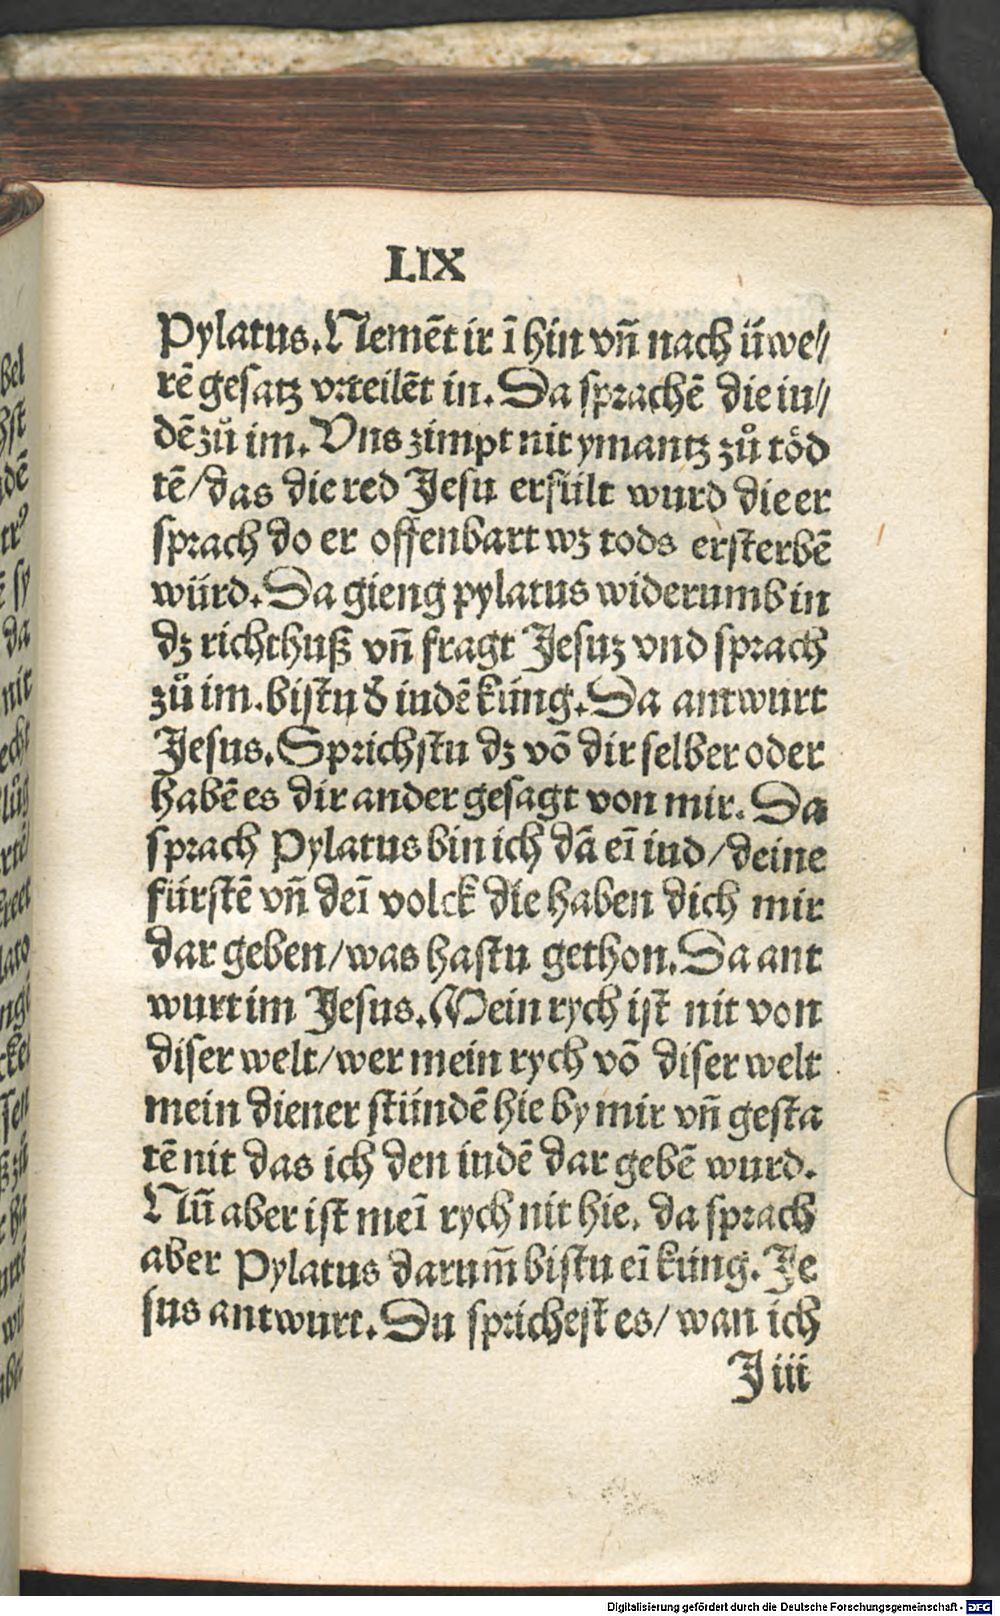 LIX
Pylatus. Nemēt ir ī hin vñ nach üwe⸗
rē gesatz vrteilēt in. Da sprachē die iu⸗
dē zů im. Vns zimpt nit ymantz zů töd
tē/das die red Jesu erfült wurd die er
sprach do er offenbart wz tods ersterbē
würd. Da gieng pylatus widerumb in
dz richthuß vñ fragt Jesuz vnd sprach
zů im. bistu đ iudē küng. Da antwurt
Jesus. Sprichstu dz vō dir selber oder
habē es dir ander gesagt von mir. Da
sprach Pylatus bin ich dā eī iud/deine
fürstē vñ deī volck die haben dich mir
dar geben/was hastu gethon. Da ant
wurt im Jesus. Mein rych ist nit von
diser welt/wer mein rych vō diser welt
mein diener stündē hie by mir vñ gesta
tē nit das ich den iudē dar gebē wurd.
Nū aber ist meī rych nit hie. da sprach
aber Pylatus darum̄ bistu eī küng. Je
sus antwurt. Du sprichest es/wan ich
J iii
Digitalisierung gefördert durch die Deutsche Forschungsgemeinschaft - DFG